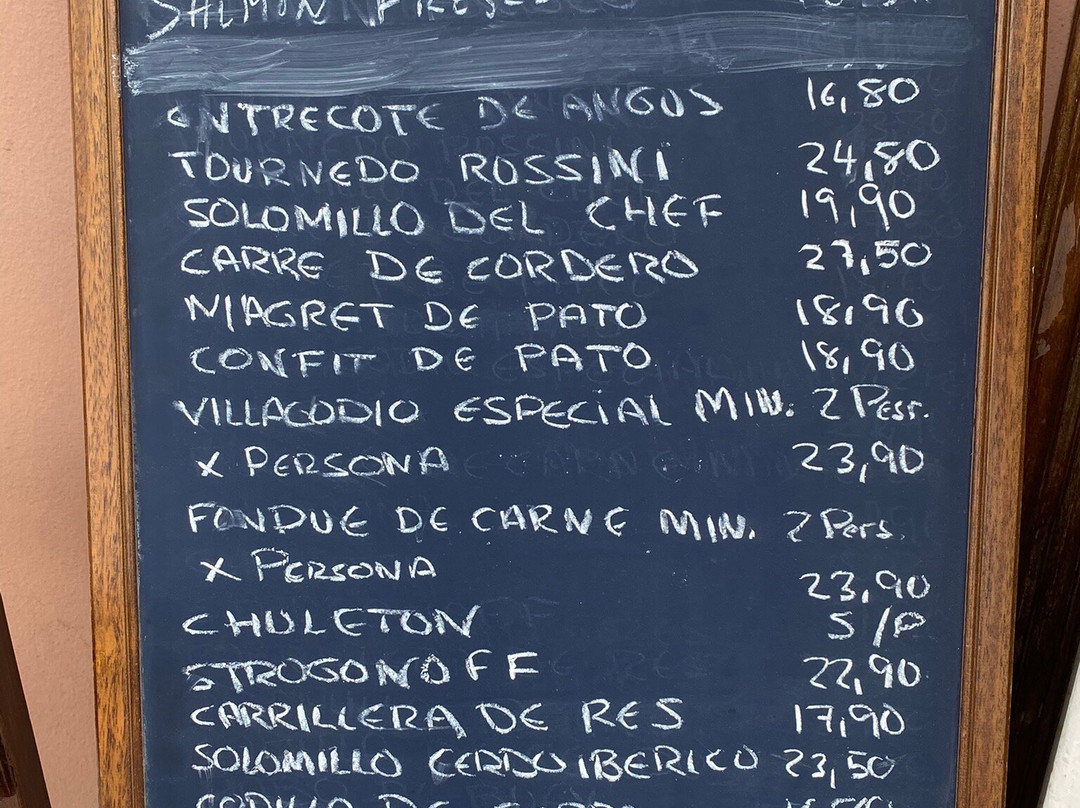 SALMON FRESCO
ENTRECOTE DE ANGUS 16,80
TOURNEDO ROSSINI 24,80
SOLOMILLO DEL CHEF 19,90
CARRE DE CORDERO 27,50
MAGRET DE PATO 18,90
CONFIT DE PATO 18,90
VILLAGODIO ESPECIAL MIN. 2 Pers.
X PERSONA 23,90
FONDUE DE CARNE MIN. 2 Pers.
X PERSONA 23,90
CHULETON S/P
STROGONOFF 22,90
CARRILLERA DE RES 17,90
SOLOMILLO CERDO IBERICO 23,50
CODILLO DE CERDO